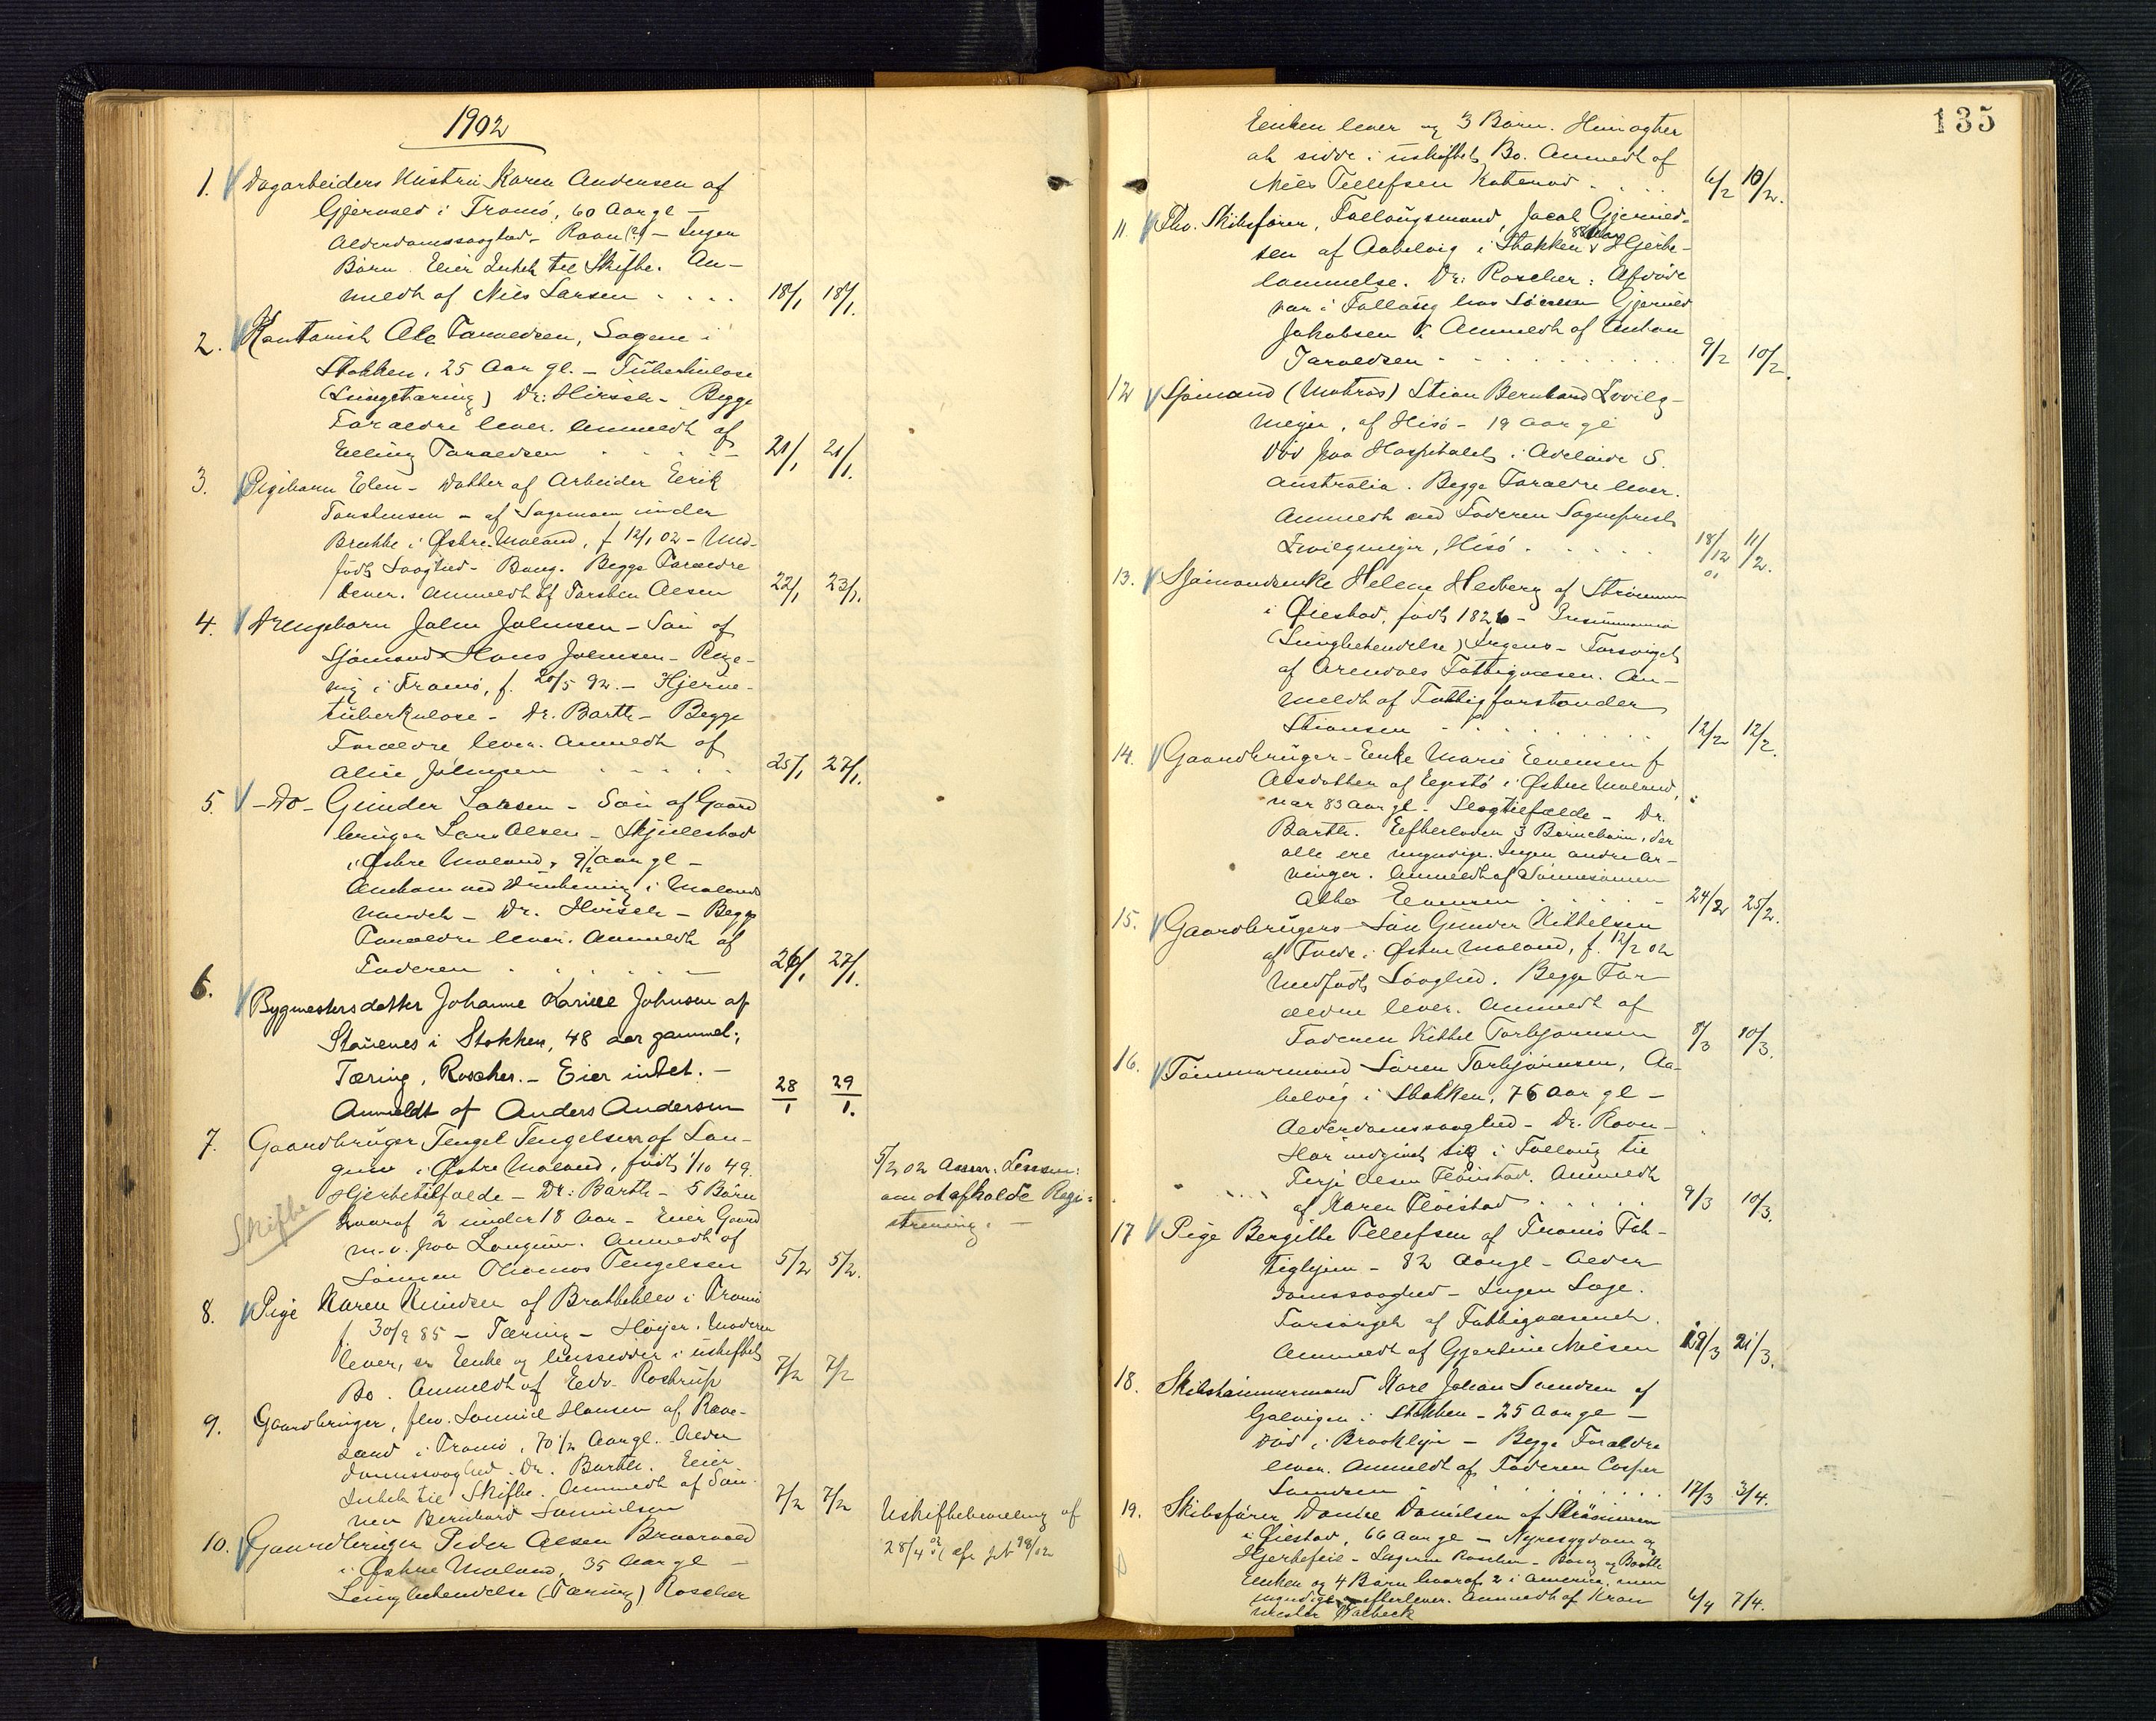 1902
1. Dagarbeiders Hustru Karen Andersen af
Gjervold i Tromö, 60 Aar gl –
Alderdomssvaghed – Ravn (?) – Ingen
Börn. Eier Intet til Skifte. An-
meldt af Nils Larsen . . . . 18/1 18/1.
2. Kontorist Ole Taraldsen, Sagene i
Stokken, 25 Aar gl. – Tüberkulose
(Lungetæring) Dr: Hirsch – Begge
Forældre lever. Anmeldt af
Elling Taraldsen . . . . 21/1 21/1.
3. Pigebarn Elen – Datter af Arbeider Eerik
Torstensen – af Sagemoen under
Brække i Østre Moland, f 12/1 02 – Med-
född Svaghed – Bang. Begge Forældre
lever. Anmeldt af Torsten Olsen 22/1 23/1.
4. Drengebarn John Johnsen – Sön af
Sjömand Hans Johnsen – Rege-
vig i Tromö, f. 20/5 92 – Hjerne-
tüberkulose – Dr. Barth – Begge
Forældre lever. Anmeldt af
Aline Johnsen . . . . . 25/1 27/1.
5 – Do – Gunder Larsen – Sön af Gaard
bruger Lars Olsen – Skjulestad
i Østre Moland, 9 1/2 Aar gl –
Omkom ved Drukning i Molands
vandet – Dr. Hirsch – Begge
Forældre lever. Anmeldt af
Faderen . . . . . . 26/1 27/1.
6. Bygmestersdatter Johanne Karine Johnsen af
Staüenes i Stokken, 48 aar gammel;
Tæring, Roscher. – Eier intet. –
Anmeldt af Anders Andersen 28/1 29/1.
7. Gaardbruger Tengel Tengelsen af Lon-
gum i Østre Moland, född 1/10 49.
Hjertetilfælde – Dr: Barth – 5 Börn
hvoraf 2 under 18 Aar – Eier Gaard
m. v. paa Longum. Anmeldt af
Sönnen Thomas Tengelsen 5/2 5/2.
Skifte
5/2 02 Anm. Lensm:
om at afholde Regi-
strering. –
8. Pige Karen Knudsen af Bratteklev i Tromö
f 30/9 85 – Tæring – Höyer. Moderen
lever, er Enke og hensidder i uskiftet
Bo. Anmeldt af Edv. Rostrup 7/2 7/2
9. Gaardbruger, fhv. Samuel Hansen af Ræve-
sand i Tromö, 70 1/2 Aar gl. Alder
domssvaghed. Dr. Barth. Eier
Intet til Skifte. Anmeldt af Sön-
nen Bernhard Samuelsen 7/2 7/2
10. Gaardbruger Peder Olsen Braarvold
i Østre Moland, 35 Aar gl –
Lungebetendelse (Tæring) Roscher
Uskiftebevilling af
28/4 02
135
Enken lever og 3 Börn. Hun agter
at sidde i uskiftet Bo. Anmeldt af
Nils Tellefsen Kattenod . . . . 6/2 10/2.
11. Fhv. Skibsförer, Follaugsmand, Jacob Gjerüld-
sen af Aabelvig i Stokken, 88 Aar Hjerte-
lammelse. Dr: Roscher: Afdöde
var i Follaug hos Sönnen Gjeruld
Jakobsen. Anmeldt af Anton
Taraldsen . . . . . 9/2 10/2.
12 Sjömand (Matros) Stian Bernhard Zwilg-
meyer, af Hisö – 19 Aar gl
Död paa Hospitalet i Adelaide S.
Australia. Begge Forældre lever.
Anmeldt ved Faderen Sogneprest
Zwilgmeyer, Hisö . . . . . 18/12 01 11/2.
13. Sjömandsenke Helene Hedberg af Strömmen
i Øiestad, född 1826 –
(Lungebetendelse) – Forsörget
af Arendals Fattigvæsen. An-
meldt af Fattigforstander
Stiansen . . . . . 12/2 12/2.
14. Gaardbruger-Enke Marie Evensen f
Olsdatter af Egestö i Østre Moland,
var 83 Aar gl. Slagtilfælde – Dr.
Barth. Efterlader 3 Börnebörn, der
alle ere myndige. Ingen andre Ar-
vinger. Anmeldt af Sönnesönnen
Atho Evensen . . . . 24/2 25/2.
15. Gaardbrugers – Sön Gunder Kittelsen
af Tvede i Østre Moland, f. 12/2 02
Medfödt Svaghed. Begge For
ældre lever. Anmeldt af
Faderen Kittel Torbjörnsen 8/3 10/3.
16. Tömmermand Sören Torbjörnsen, Aa-
belvig i Stokken, 76 Aar gl –
Alderdomssvaghed – Dr. Ravn –
Har indgivet sig i Follaug til
Terje Olsen Flöistad. Anmeldt
af Karen Flöistad . . . . . 9/3 10/3.
17 Pige Bergitte Tellefsen af Tromö Fat-
tighjem – 82 Aar gl – Alder
domssvaghed – Ingen Læge.
Forsörget af Fattigvæsenet.
Anmeldt af Gjertine Nilsen 19/3 21/3.
18. Skibstömmermand Karl Johan Svendsen af
Galvigen i Stokken – 25 Aar gl –
Död i Brooklyn – Begge Forældre
lever. Anmeldt af Faderen Casper
Svendsen . . . . . 17/3 3/4.
19. Skibsförer Daniel Danielsen af Strömmen
i Øiestad, 66 Aar gl – Nyresygdom og
Hjertefeil – Lægerne Roscher – Bang og Barth
Enken og 4 Börn hvoraf 2 i America, men
myndige efterlever. Anmeldt af Kran
mester Holbeck 6/4 7/4.